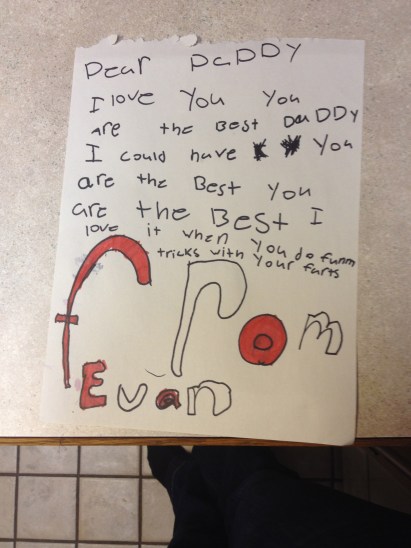 Dear DaDDY
I love You You
are the Best DaDDY
I could have You
are the Best You
are the Best I
love it when You do funm
tricks with Your farts
from
Evan